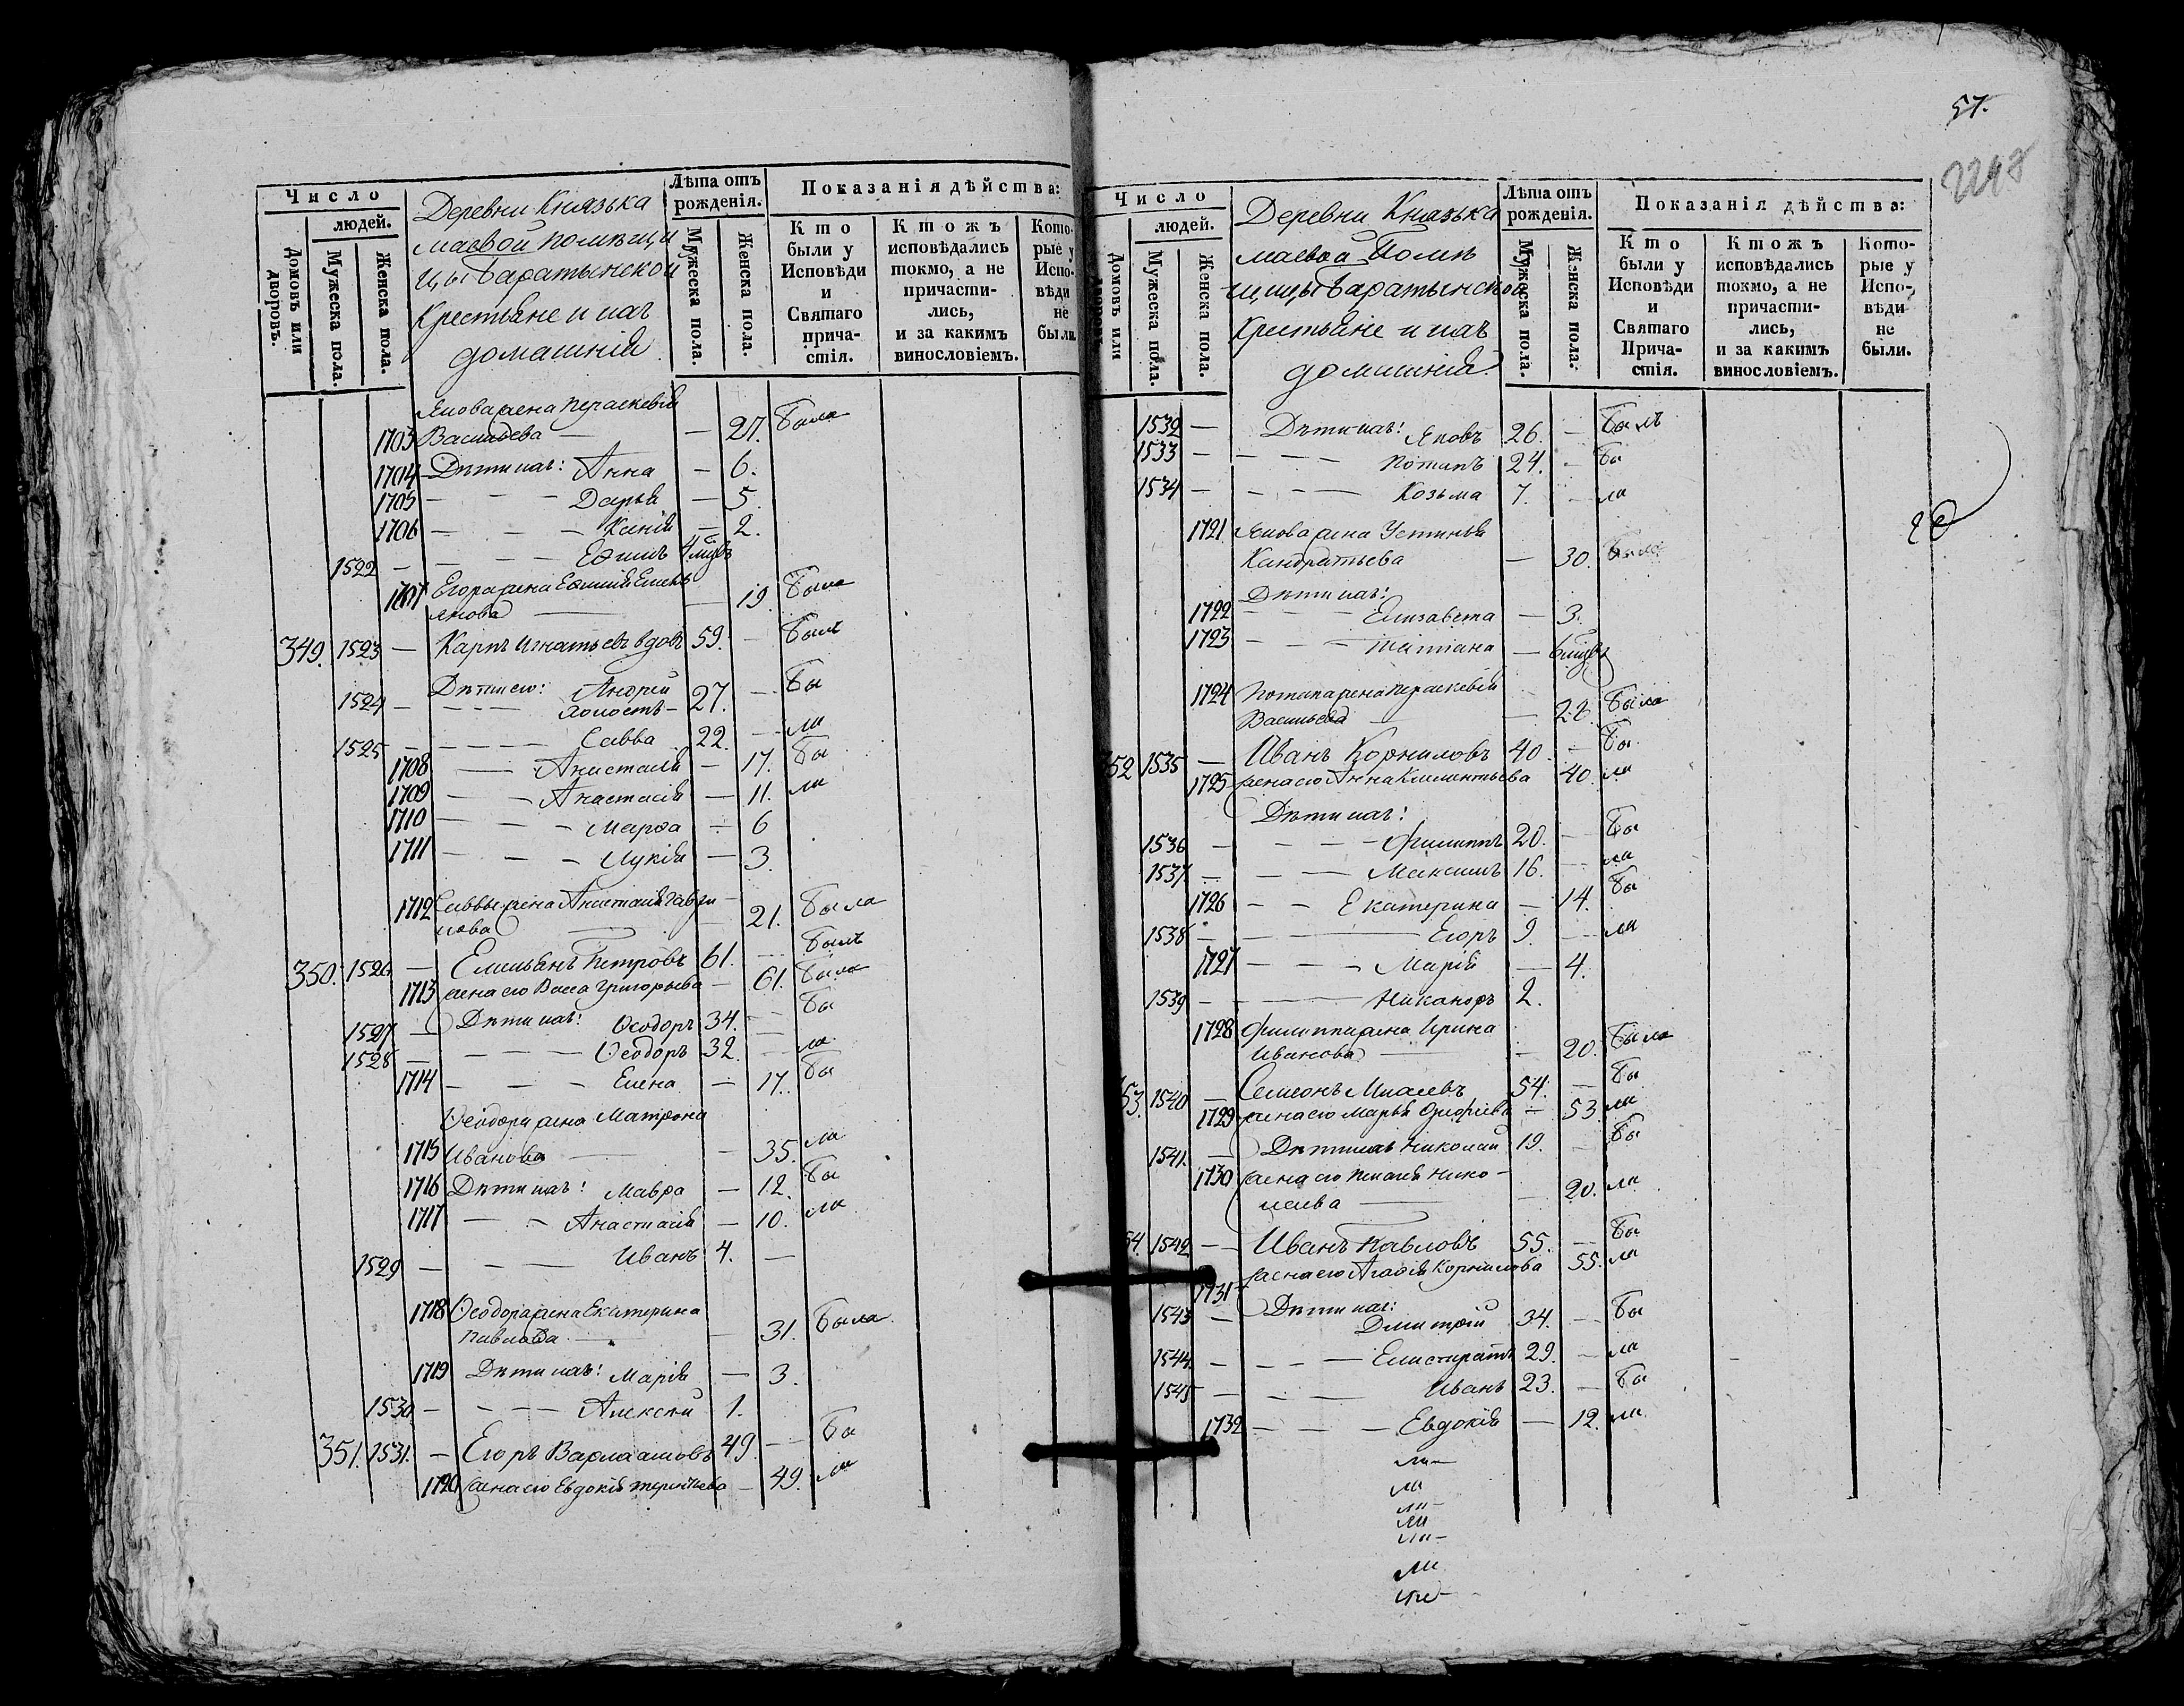 Число
людей.
Домовъ или дворовъ.
Мужеска пола.
Женска пола.
Деревни Князька
маевой помѣщи
цы Баратынской
Крестьяне и ихъ
домашнія
Лѣта отъ рожденія.
Мужеска пола.
Женска пола.
Показанія дѣйства:
Кто были у Исповѣди и Святаго причастія.
Ктожъ исповѣдались токмо, а не причастились, и за какимъ винословіемъ.
Которые у Исповѣди не были.
Яковa жена Параскевія
1703 Васильева — — 27. Была
1704 Дѣти ихъ: Анна — 6.
1705 — — — Дарья — 5.
1706 — — — Ксенія — 2.
1522 — — — Ефимъ 4 мцъ
1707 Егора жена Ефимія Емель
янова — — 19. Была
349. 1523 — Карпъ Игнатьевъ вдовъ 59. — Былъ
Дѣти его: Андрей
1524 — — — холостъ — 27. — Бы
1525 — — — Савва 22. — ли
1708 — — Анистасія — 17. Бы
1709 — — Анастасія — 11. ли
1710 — — — Марѳа — 6
1711 — — — Лукія — 3.
1712 Саввы жена Анистасія Гаври
лова — — 21. Была
350. 1526 — Емельянъ Петровъ 61. — Былъ
1713 жена его Васса Григорьева — 61. Была
1527 — Дѣти ихъ: Ѳеодоръ 34. — Бы
1528 — — — — Ѳеодоръ 32. — ли
1714 — — — Елена — 17. Бы
Ѳеодора жена Матрона
1715 Иванова — — 35. ли
1716 Дѣти ихъ: Мавра — 12. Бы
1717 — — Анастасія — 10. ли
1529 — — — Иванъ 4. —
1718 Ѳеодора жена Екатерина
Павлова — — 31. Была
1719 Дѣти ихъ: Марія — 3.
1530 — — — Алексѣй 1.
351. 1531. — Егоръ Варлаамовъ 49 — Бы
1720 жена его Евдокія Терентьева — 49. ли
57.
2248
Число
людей.
Домовъ или дворовъ.
Мужеска пола.
Женска пола.
Деревни Князька
маевой Помѣ
щицы Баратынской
Крестьяне и ихъ
домашнія
Лѣта отъ рожденія.
Мужеска пола.
Женска пола.
Показанія дѣйства:
Кто были у Исповѣди и Святаго Причастія.
Ктожъ исповѣдались токмо, а не причастились, и за какимъ винословіемъ.
Которые у Исповѣди не были.
1532 — Дѣти ихъ: Яковъ 26. — Былъ
1533 — — — — Потапъ 24. — Бы
1534 — — — — Козьма 7. — ли
1721 Яковa жена Устинья
Кандратьева — 30. Была
Дѣти ихъ:
1722 — — — Елизавета — 3.
1723 — — — Татіана — 6 мцъ
1724 Потапа жена Параскевія
Васильева — — 22. Была
352 1535 — Иванъ Корниловъ 40. — Бы
1725 жена его Анна Климентьева 40. ли
Дѣти ихъ:
1536 — — — Филиппъ 20. — Бы
1537. — — — Максимъ 16. — ли
1726 — — Екатерина — 14. Бы
1538 — — Егоръ 9. — ли
1727 — — — Марія — 4.
1539 — — — Никаноръ 2.
1728 Филиппа жена Ирина
Иванова — — 20. Была
53. 1540 — Семіонъ 54. — Бы
1729 жена его Марья — 53 ли
1541. — Дѣти ихъ Николай 19. — Бы
1730 жена его Нико-
лаева — — 20. ли
54. 1542 — Иванъ Павловъ 55. — Бы
1731 жена его Агафія Корнилова 55. ли
Дѣти ихъ:
1543 — Дмитрій 34. — Бы
1544 — — — Елистратъ 29. — ли
1545 — — — Иванъ 23. — Бы
1732 — — — Евдокія — 12. ли
ли —
ли
ли —
ли
ли —
ли